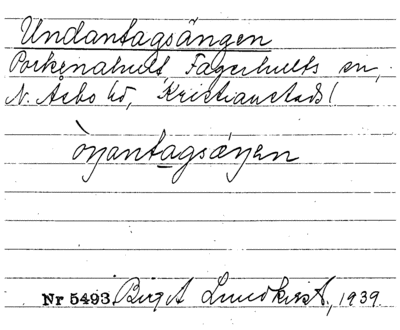 Undantagsängen
Porkenahult Fagerhults sn,
N. Åsbo hd, Kristianstads l
Nr 5493 Birgit Lundkvist, 1939